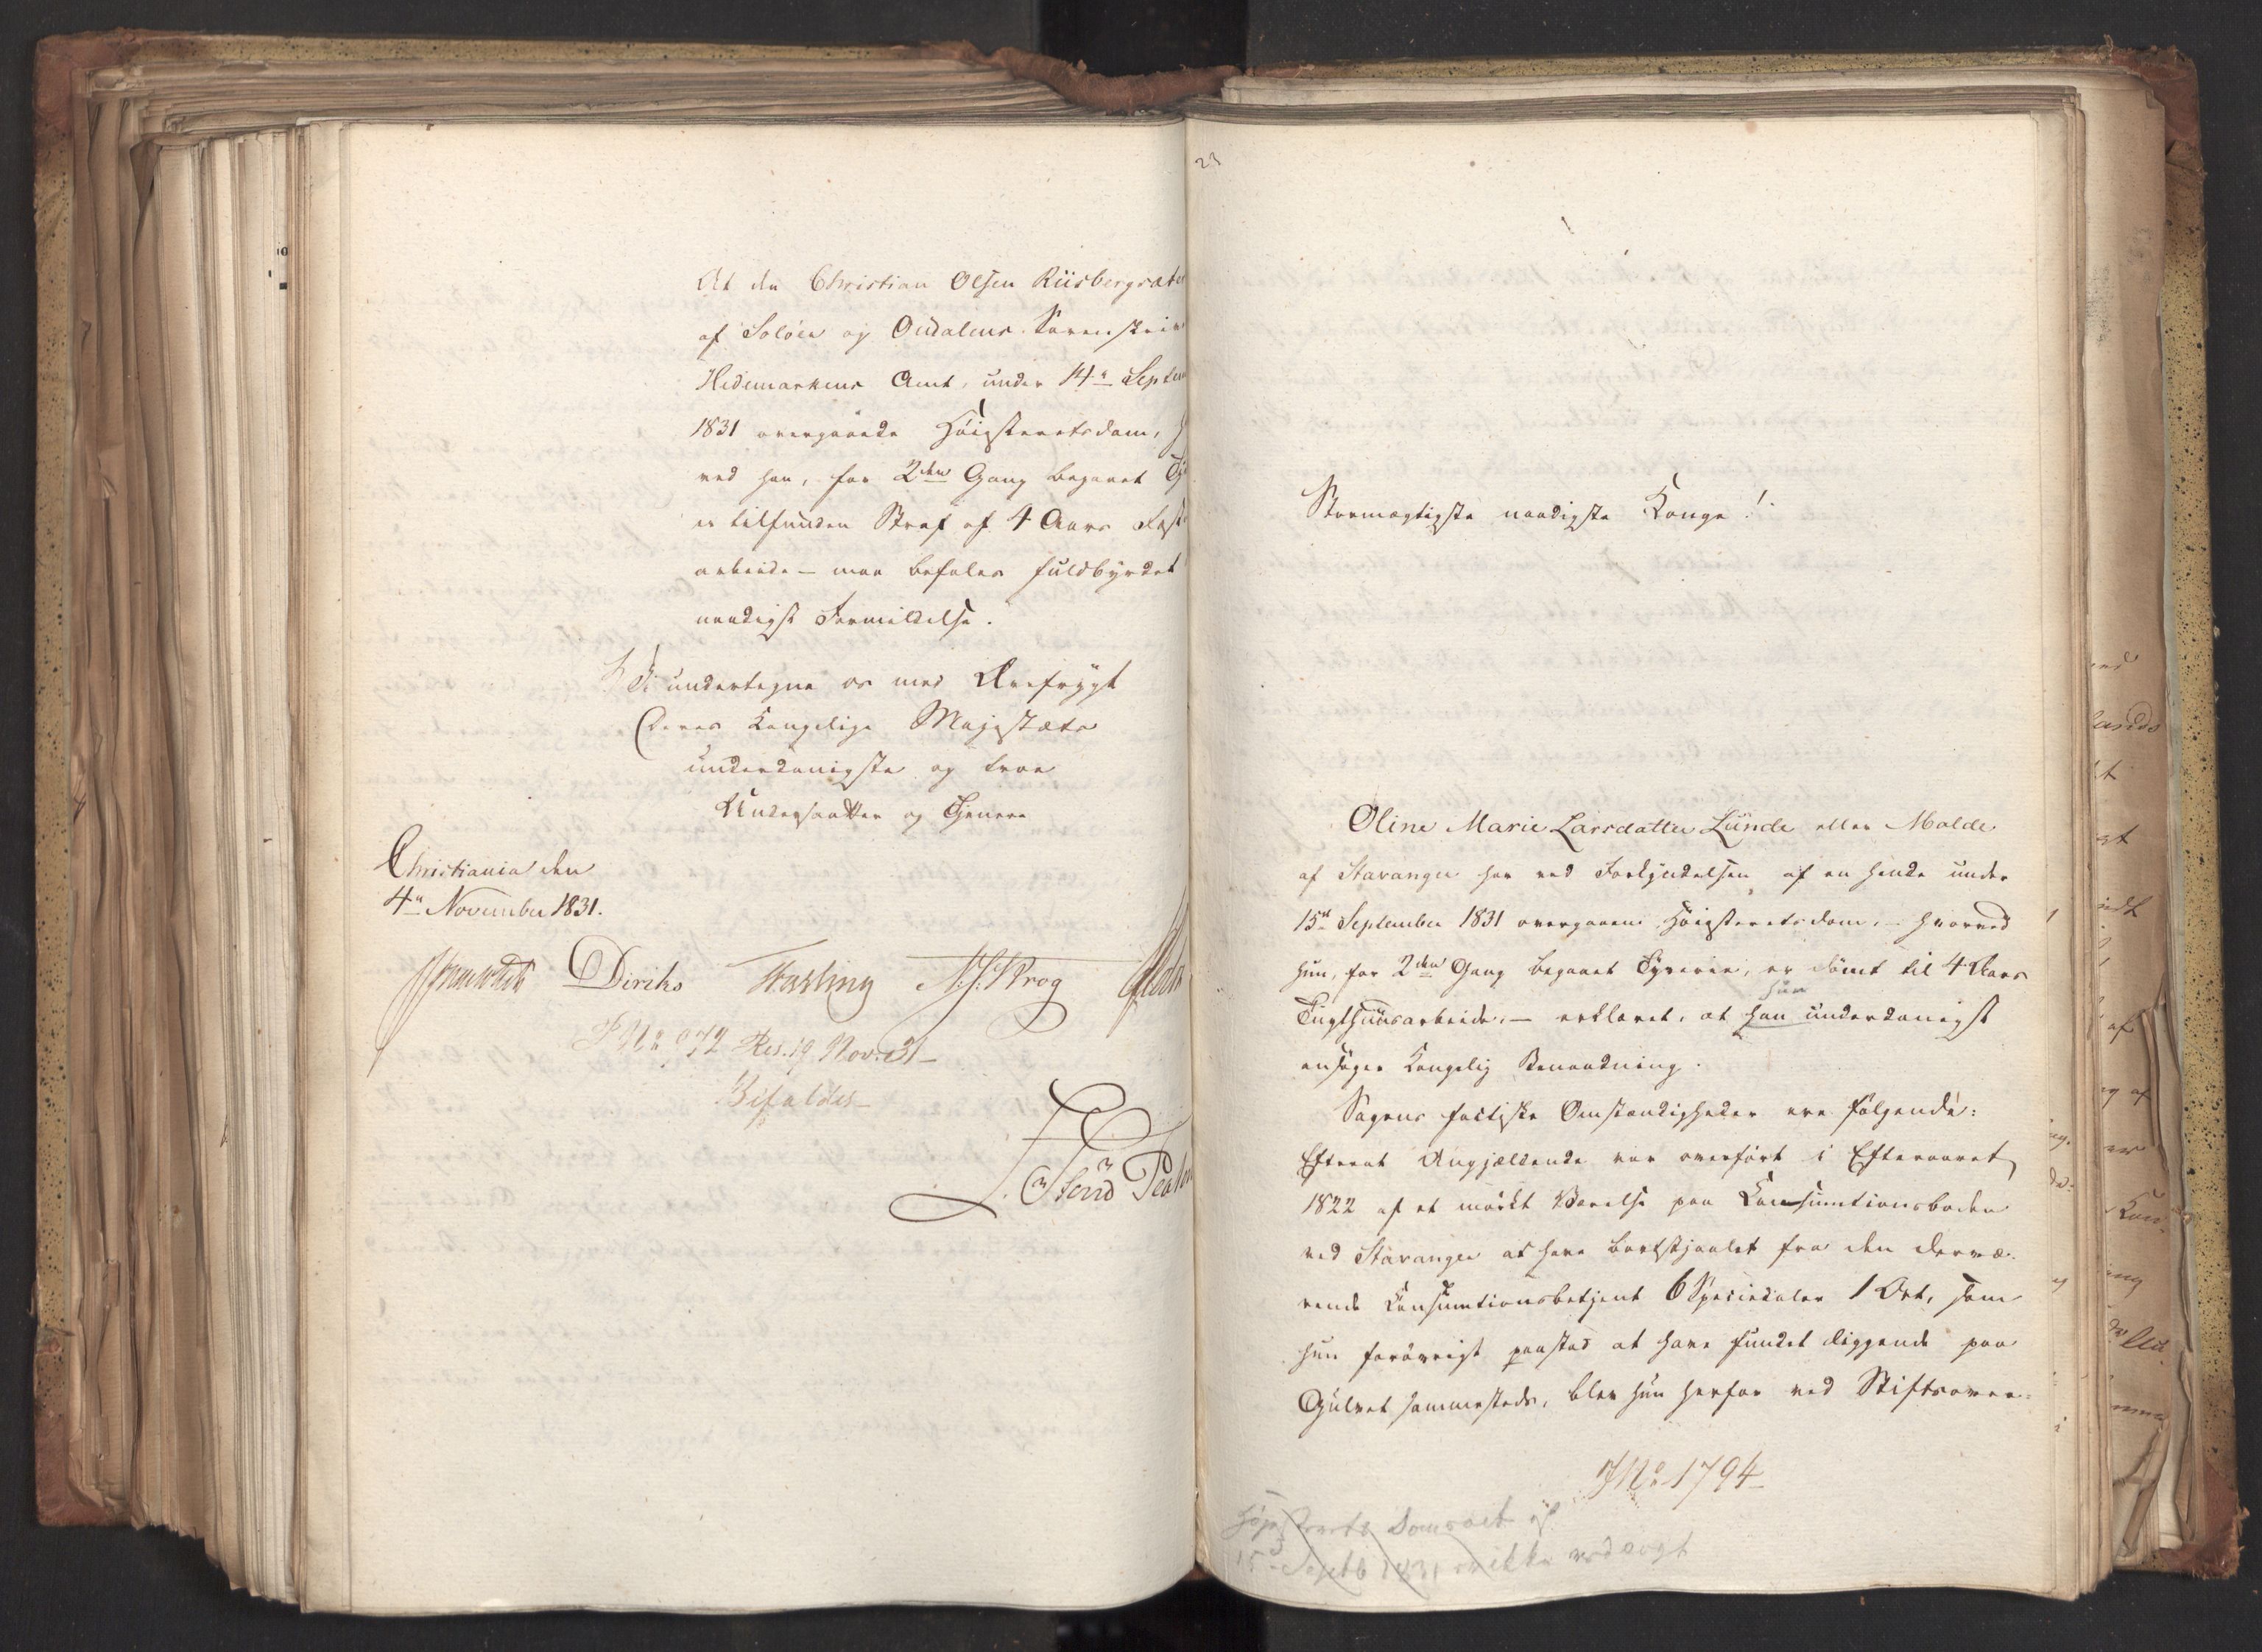 At den Christian Olsen Riisbergsæte
af Soløer og Oudalens Sorenskriv
Hedemarkens Amt, under 14de Septem
1831 overgaaede Høiesteretsdom, h
ved han, for 2den Gang begaaet Ty
er tilfunden Straf af 4 Aars Fæst
arbeide - maa befales fuldbyrdet
naadigst Formildelse.
Vi undertegne os med Ærefrygt
Deres Kongelige Majestæts
underdanigste og troe
Undersaatter og Tjenere
Christiania den
4de November 1831.
Diriks N. J. Krog
No 972 Res. 19 Nov. 31
Bifaldes
23
Stormægtigste naadigste Konge!
Oline Marie Larsdatter Lünde eller Molde
af Stavanger har ved Forkyndelsen af en hende under
15de September 1831 overgaaen Høiesteretsdom, - hvorved
hun, for 2den Gang begaaet Tyverie, er dømt til 4 Aars
hun
Tugthuusarbeide, - erklæret, at han underdanigst
ansøger Kongelig Benaadning.
Sagens factiske Omstændigheder ere følgende:
Efterat Angjældende var overført i Efteraaret
1822 af et mørkt Værelse paa Consumtionsboden
ved Stavanger at have bortstjaalet fra den dervæ-
rende Consumtionsbetjent 6 Speciedaler 1 Ort, som
hun forøvrigt paastod at have fundet liggende paa
Gulvet sammesteds, blev hun herfor ved Stiftsover-
JNo 1794
Høiesterets Domsact af
15de Septb 1831 er ikke vedlagt